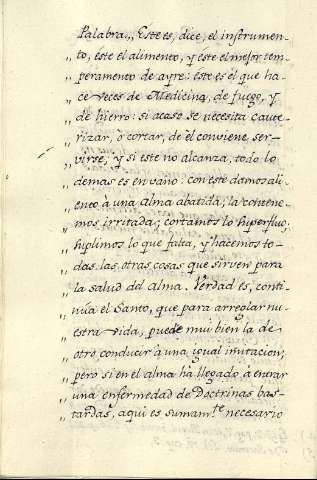 Palabra,, Este es, dice, el instrumen-
,, to, este el alimento, y este el mejor tem-
,, peramento de ayre: este es el que ha-
,, ce veces de Medicina, de fuego, y
,, de hierro: si acaso se necesita caute-
,, rizar, ò cortar, de èl conviene ser-
,, virse, y si este no alcanza, todo lo
,, demas es en vano: con este damos ali-
,, ento à una alma abatida; la contene-
,, mos irritada; cortamos lo superfluo;
,, suplimos lo que falta, y hacemos to-
,, das las otras cosas que sirven para
,, la salud del alma. Verdad es, conti-
,, nùa el Santo, que para arreglar nu-
,, estra vida, puede mui bien la de
,, otro conducir à una igual imitacion;
,, pero si en el alma ha llegado à entrar
,, una enfermedad de Doctrinas bas-
,, tardas, aqui es sumamte necesario